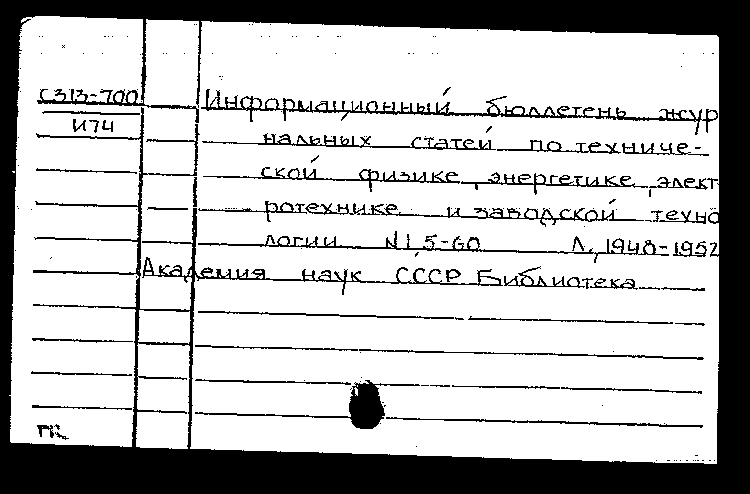 С313-700
И74
Информационный бюллетень жур
нальных статей по техниче-
ской физике, энергетике, элект
ротехнике и заводской техно
логии N1,5-60 Л., 1948-1952
Академия наук СССР Библиотека